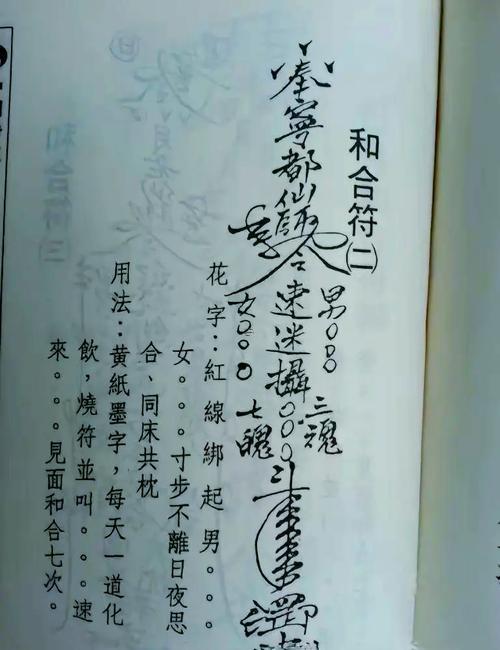 和合符㈡
奉寧都仙師令速迷攝。。。
男。。。三魂
女。。。七魄
花字：紅線綁起男。。。
女。。。寸步不離日夜思
合、同床共枕
用法：黃紙墨字，每天一道化
飲，燒符並叫。。。速
來。。。見面和合七次。